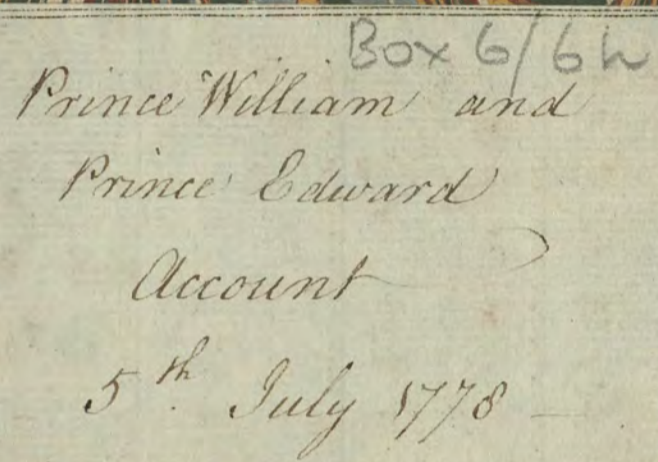 Box 6/6h
Prince William and
Prince Edward
Account
5th. July 1778 —